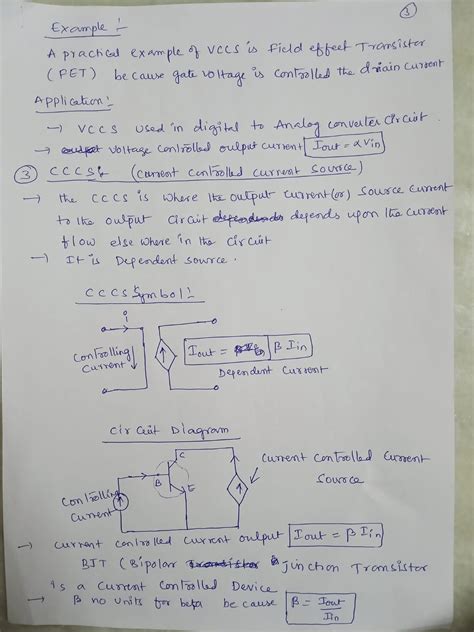 ③
Example :-
A practical example of VCCS is Field effect Transistor
(FET) because gate voltage is controlled the drain current
Application :-
→ VCCS used in digital to Analog converter Circuit.
→ output voltage controlled output current Iout = αVin
③ CCCS :- (Current controlled current source)
→ the CCCS is where the output current (or) source current
to the output circuit depends upon the current
flow elsewhere in the circuit
→ It is Dependent source.
CCCS Symbol :-
i
Controlling
Current
Iout = β Iin
Dependent Current
Circuit Diagram
C
B
E
Controlling
Current
Current controlled Current
Source
→ Current controlled current output Iout = β Iin
BJT (Bipolar junction Transistor
is a Current Controlled Device
→ β no units for beta because β = Iout / Iin